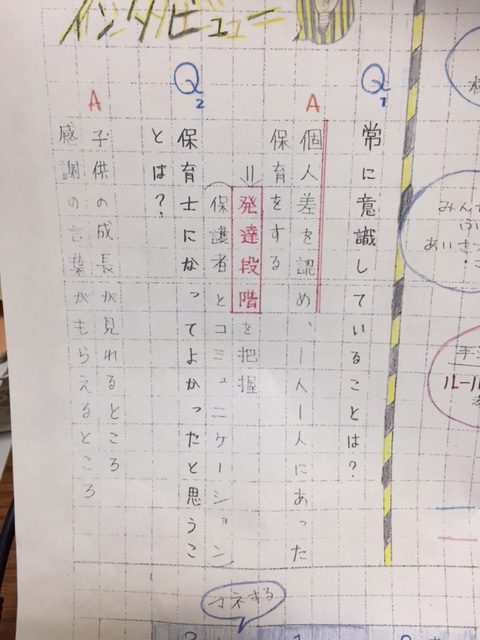 インタビュー
Q1
常に意識していることは?
A
個人差を認め、一人一人にあった
保育をする
=発達段階を把握
(保護者とコミュニケーション)
Q2
保育士になってよかったと思うこ
とは?
A
子供の成長が見れるところ
感謝の言葉がもらえるところ
みんな
あいさつ
ルール
マネする